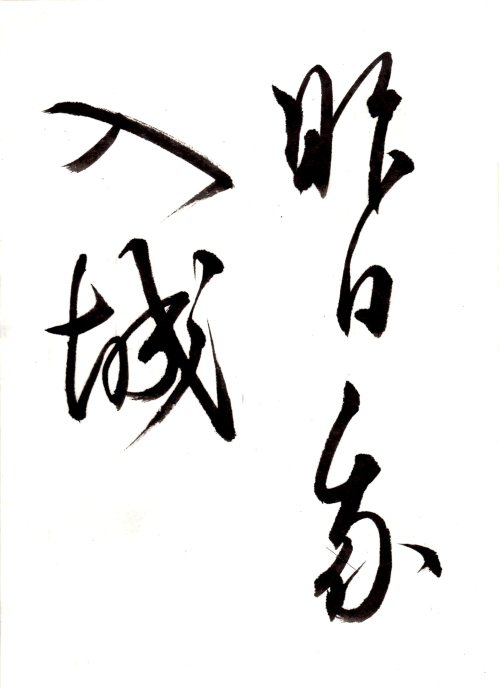 昨日
入城